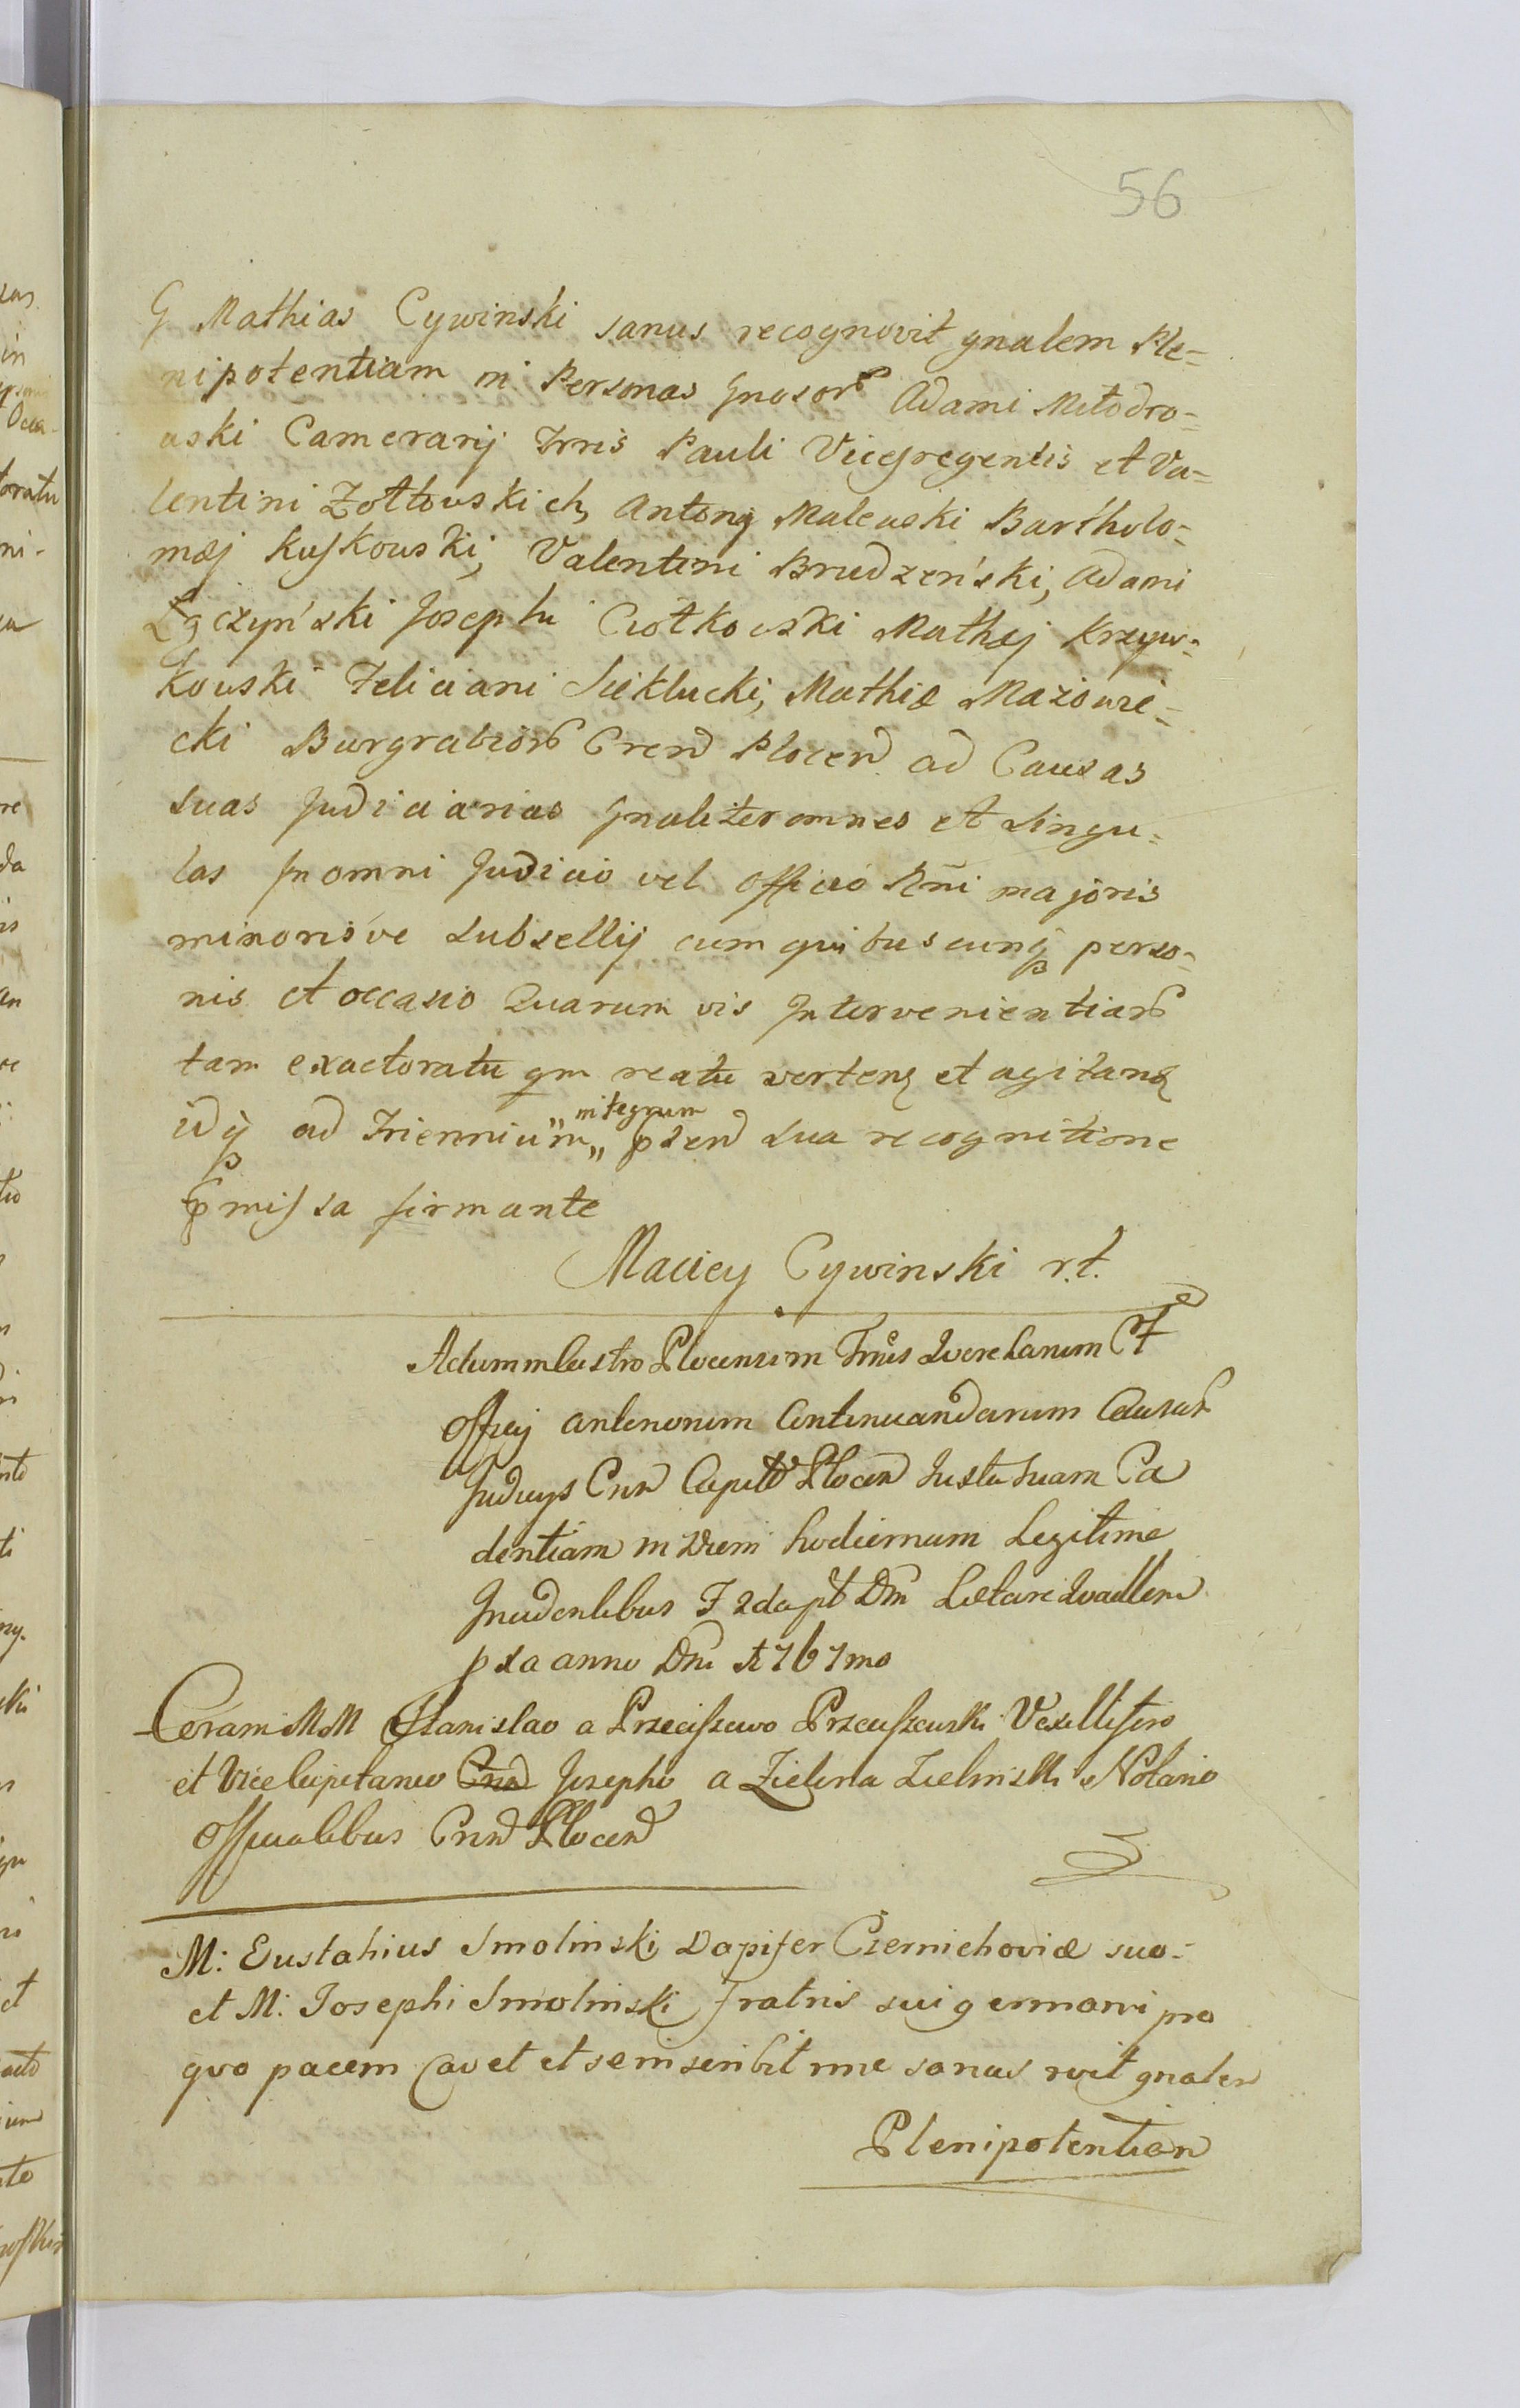 56
G Mathias Cywinski sanus recognovit gnalem Ple=
nipotentiam in Personas Gnosor Adami Młodro=
uski Camerarij Trris Pauli Vicesregentis et Va=
lentini Zołtowskich, Antonij Malewski Bartholo=
mæj Kuskowski, Valentini Brudzeński, Adami
Łączyński Josephi Ciołkowski Mathæj Krzyw=
kowski Feliciani Sieklucki, Mathiæ Mazowie=
cki Burgrabior Cren Plocen ad Causas
suas Judiciarias Gnaliter omnes et singu=
las In omni Judicio vel Officio Rñi majoris
minorisve Subsellij cum quibuscunq perso=
nis et occasio Quarum vis Intervenientiar
tam exactoratu qm reatu verten et agitan
idq ad Triennium „integrum„ pden sua recognitione
pmissa firmante
Maciey Cywinski r.t.
Actum in Castro Plocensi in Trmis Querelarum et
Officij antenorum Continuandarum Causar
Judicijs Cren Capitt Plocen Juxta suam Ca
dentiam in Diem hodiernum Legitime
Incidentibus F 2da pt Dm Lætare Quadlem
pxa anno Dni 1767mo
Coram MM Stanislao a Przeciszewo Przeciszewski Vexillifero
et Vice Capitaneo Josepho a Zielona Zielinski Notario
Officialibus Cren Plocen
M: Eustahius Smolinski Dapifer Czerniehoviæ suo=
et M: Josephi Smolinski fratris sui germani pro
quo pacem cavet et se inscribit nne sanus rvit gnalen
Plenipotentian